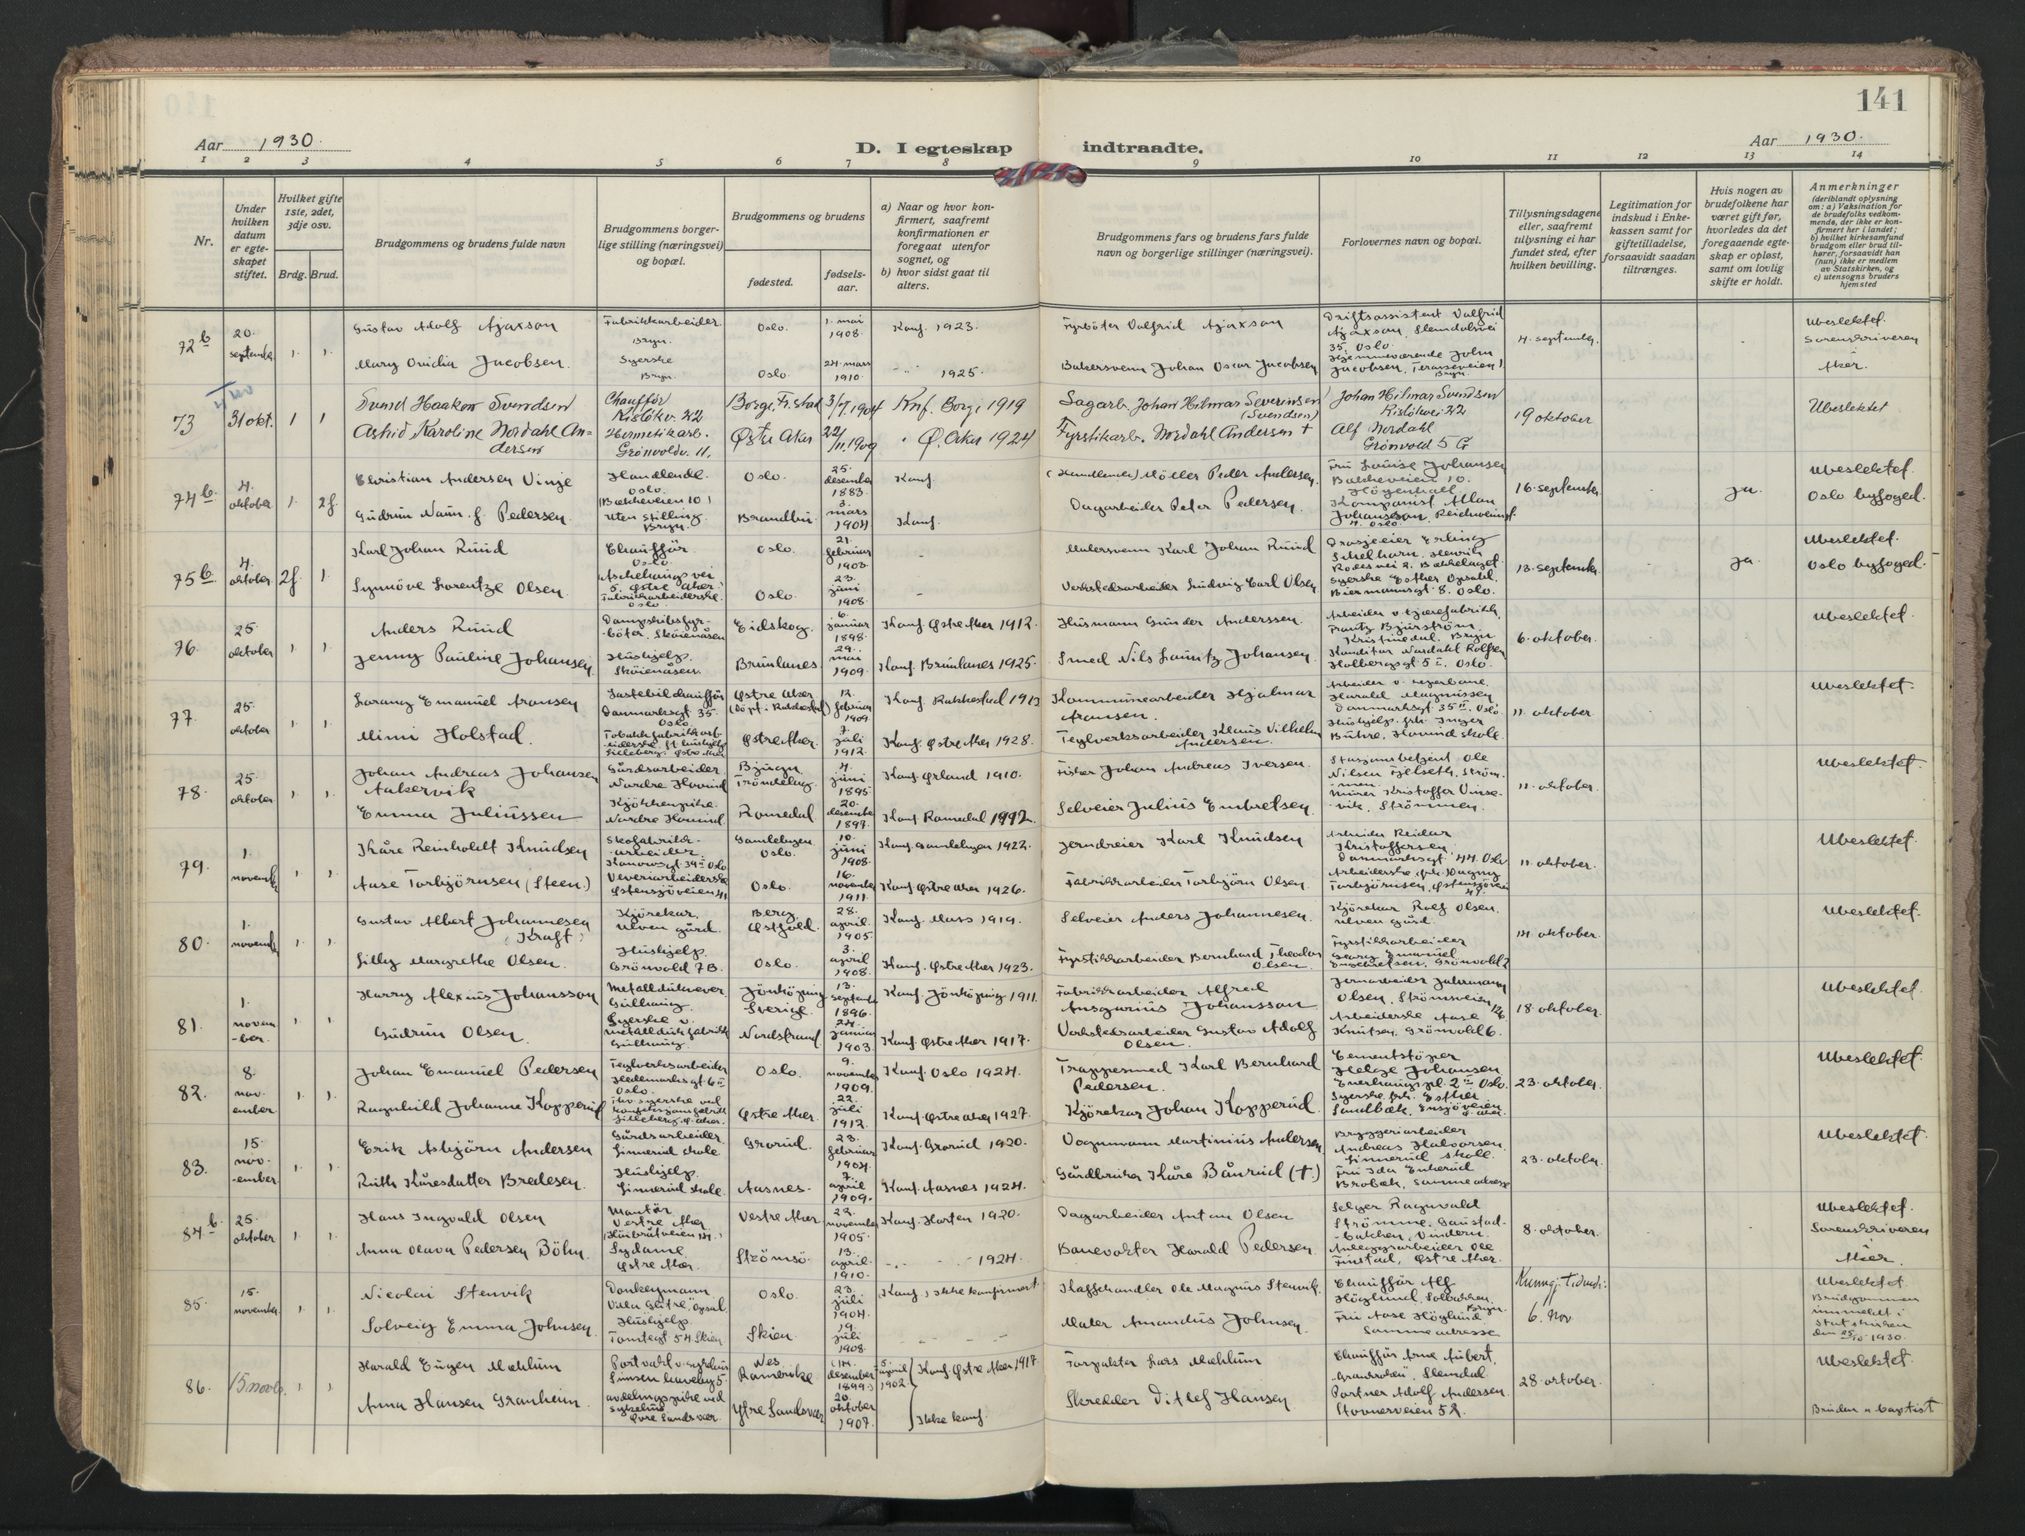 141
Aar 1930.
D. I egteskap indtraadte.
Aar 1930.
1 2 3 4 5 6 7 8 9 10 11 12 13 14
Nr.
Under hvilken datum er egteskapet stiftet.
Hvilket gifte 1ste, 2det, 3dje osv.
Brdg. Brud.
Brudgommens og brudens fulde navn
Brudgommens borgerlige stilling (næringsvei) og bopæl.
Brudgommens og brudens
fødested.
fødselsaar.
a) Naar og hvor konfirmert, saafremt konfirmationen er foregaat utenfor sognet, og
b) hvor sidst gaat til alters.
Brudgommens fars og brudens fars fulde navn og borgerlige stillinger (næringsvei).
Forlovernes navn og bopæl.
Tillysningsdagene eller, saafremt tillysning ei har fundet sted, efter hvilken bevilling.
Legitimation for indskud i Enkekassen samt for giftetilladelse, forsaavidt saadan tiltrænges.
Hvis nogen av brudefolkene har været gift før, hvorledes da det foregaaende egteskap er opløst, samt om lovlig skifte er holdt.
Anmerkninger
(deriblandt oplysning om: a) Vaksination for de brudefolks vedkommende, der ikke er konfirmert her i landet; b) hvilket kirkesamfund brudgom eller brud tilhører, forsaavidt han (hun) ikke er medlem av Statskirken, og c) utensogns bruders hjemsted
72b 20. september 1. 1. Gustav Adolf Ajaxson Fabrikkarbeider. Bryn. Oslo. 1. mai 1908. Konf. 1923. Fyrbøter Valfrid Ajaxson Driftsassistent Valfrid Ajaxson, Slemdalsvei 35, Oslo. 4. september. Ubeslektet. Sorenskriveren i Aker.
Mary Ovidia Jacobsen. Syerske Bryn. Oslo. 24. mars 1910. 1925. Bakersvenn Johan Oscar Jacobsen Hjemmeværende John Jacobsen, Bryn.
73 31 okt. 1 1 Svend Haakon Svendsen Chauffør Risløkv. 22 Borge, Fr.stad 1904 Knf. Borge 1919 Sagarb. Johan Hilmar Severinsen (Svendsen) Johan Hilmar Svendsen Risløkvei 22 19 oktober Ubeslektet
Astrid Karoline Nordahl Andersen Hermetikarb. Grönvoldv. 11. Østre Aker 22/11. 1909 " Ø. Aker 1924 Fyrstikarb. Nordahl Andersen + Alf Nordahl Grönvold 5 G
74b. 4. oktober 1. 2g. Christian Andersen Vinje Handlende. Oslo. (Bækkeveien 10) Oslo. 25. desember 1883. Konf (Handlende) Möller Peder Andersen. Fru Louise Johansen Bækkeveien 10. Høyenhall 16. september. ja. Ubeslektet. Oslo byfoged.
Gudrun Naim f. Pedersen. Uten stilling. Bryn. Brandbu. 3. mars 1904 Konf. Dagarbeider Peter Pedersen. Allan Johansson, Oslo.
75b. 4. oktober. 2g. 1. Karl Johan Ruud Chauffør Oslo. Oslo. 21. februar 1903. - Malersvenn Karl Johan Ruud Erling Schelhorn, Henrik 13. september. ja. Ubeslektet. Oslo byfoged.
Synnöve Lorentze Olsen. Fabrikkarbeiderske. Oslo. Oslo. 23. juni 1908. - Verkstedsarbeider Ludvig Carl Olsen Syerske Esther Opsahl, Biermannsgt 8. Oslo.
76. 25 oktober 1. 1. Anders Ruud Skøienåsen Eidskog. 6. januar 1898. Konf Østre Aker 1912. Husmann Gunder Anderssen. Frantz Bjurström, Kristinedal, Bryn 6. oktober. Ubeslektet
Jenny Pauline Johansen. Hushjelp. Skøienåsen. Brunlanes. 29. mai 1909. Konf. Brunlanes 1925. Smed Nils Lauritz Johansen. Konditor Nordahl Rolfsen Holbergsgt 5 I. Oslo.
77. 25. oktober 1. 1. Emanuel Aronsen Lastebilchauffør Danmarksgt. 35. Oslo Østre Aker (Döpt i Rakkestad) 12. februar 1909. Konf Rakkestad 1913 Kommunearbeider Hjalmar Aronsen. Harald Magnussen Danmarksgt 35 II. Oslo. 11. oktober Ubeslektet.
Mimi Holstad. Østre Aker. 7. juli 1912. Konf. Østre Aker 1928. Teglverksarbeider Klaus Vilhelm Andersen. Hushjelp. frk. Inger Buhre, Hovind skole.
78. 25 oktober 1. 1. Johan Andreas Johansen Aakervik Gårdsarbeider. Nordre Hovind Bjugn, Tröndelag. 4. juni 1895 Konf Ørland 1910. Fisker Johan Andreas Iversen. Ole Nilsen Fjelseth, Strömmen. 11. oktober. Ubeslektet.
Emma Juliussen Kjökkenpike. Nordre Hovind. Romedal 20. desember 1897. Konf Romedal 1912. Selveier Julius Embretsen Murer Kristoffer Vinsevik, Strömmen.
79. 1. november 1. 1. Kåre Reinholdt Knudsen Skofabrikkarbeider Gamlebyen Oslo. 10. juni 1908. Konf. Gamlebyen 1922. Jerndreier Karl Knudsen Arbeider Reidar Kristoffersen, Danmarksgt. 44 Oslo 11. oktober. Ubeslektet.
Aase Torbjörnsen (Steen.) Veveriarbeiderske Østensjöveien 41 Oslo. 16. november 1911. Konf Østre Aker 1926. Fabrikkarbeider Torbjörn Olsen. Arbeiderske frk. Dagny Torbjörnsen, Østensjöveien 41.
80. 1. november. 1. 1. Gustav Albert Johannesen (Kraft) Kjörekar, Ulven gård. Berg, Østfold. 28. april. 1905. Konf. Moss 1919. Selveier Anders Johannesen. Kjörekar Rolf Olsen. Ulven gård. 14. oktober. Ubeslektet.
Lilly Margrethe Olsen. Hushjelp. Grönvold 7B. Oslo. 3. april 1908. Konf. Østre Aker 1923. Fyrstikkarbeider Bernhard Theodor Olsen. Fyrstikkarbeider Georg Emanuel Grönvold 2
81. 1. november. 1 1 Harry Alexius Johansson Gulhaug. Jönköping Sverige. 13. september 1896. Konf. Jönköping 1911. Fabrikkarbeider Alfred Ansgarius Johansson Jernarbeider Olsen, Strömsveien 126 18. oktober. Ubeslektet.
Gudrun Olsen. Syerske v. metalldukfabrikk Gulhaug. Nordstrand 24. januar 1903. Konf Østre Aker 1917. Verkstedsarbeider Gustav Adolf Olsen. Arbeiderske Aase Knutsen, Grönvold 6.
82. 8. november 1. 1. Johan Emanuel Pedersen Teglverksarbeider Hedemarksgt 6 II Oslo. Oslo. 9. november 1909. Konf. Oslo 1924. Trappesmed Karl Bernhard Pedersen. Cementstöper Helge Johansen Enerhaugspl. 2 Oslo. 23. oktober. Ubeslektet.
Ragnhild Johanne Kopperud Østre Aker. 22. juli 1912. Konf Østre Aker 1927. Kjörekar Johan Kopperud. Syerske frk. Esther Sandbæk, Ensjöveien Ø. Aker.
83. 15. november 1. 1. Erik Asbjörn Andersen Gårdsarbeider. Linnerud skole Grorud. 23. februar 1904. Konf. Grorud 1920. Vognmann Martinius Andersen Bryggeriarbeider Andreas Halvorsen Linnerud skole. 23. oktober. Ubeslektet.
Ruth Kåresdatter Bredesen. Hushjelp. Linnerud skole. Aasnes. 7. april 1909. Konf. Aasnes 1924. Gårdbruker Kåre Bånrud (+.) Fru Ida Enkerud Brobæk, samme adresse
84b 25. oktober 1. 1. Hans Ingvald Olsen Montör Vestre Aker. Vestre Aker 22. november 1905. Konf. Horten 1920. Dagarbeider Anton Olsen Selger Ragnvald Strömme, Gaustadbakken, Vindern. 8. oktober. Ubeslektet. Sorenskriveren i Aker.
Anna Olava Pedersen Böhn. Sydame. Østre Aker. Strömsö. 13. april. 1910. 1924. Banevokter Harald Pedersen. Anleggsarbeider Ole Finstad, Østre Aker.
85. 15. november. 1. 1. Nicolai Stenvik Donkeymann Oslo. 23. juli 1904. Konf. Ikke konfirmert. Kaffehandler Ole Magnus Stenvik. Chauffør Alf Höglund, Solbakken, Bryn. Kunngj. Tidende: 6. Nov Ubeslektet. Brudgommen innmeldt i statskirken 1930.
Solveig Emma Johnsen. Hushjelp. Tomtegt 54 Skien Skien. 19. juli 1908. Maler Amandus Johnsen. Fru Aase Höglund. samme adresse
86. 15 novb. 1. 1. Harald Eugen Mæhlum Nes Romerike. (14. desember 1899.) 5. april 1902. Konf Østre Aker 1917. Forpakter Lars Mæhlum Chauffør Arne Aubert, Slemdal 28. oktober. Ubeslektet.
Anna Hansen Granheim. Øvre Sandsvær. Ytre Sandsvær 20. oktober 1907. Ikke konf. Skredder Ditlef Hansen. Partner Adolf Andersen. Stovnerveien 52. Bruden er baptist